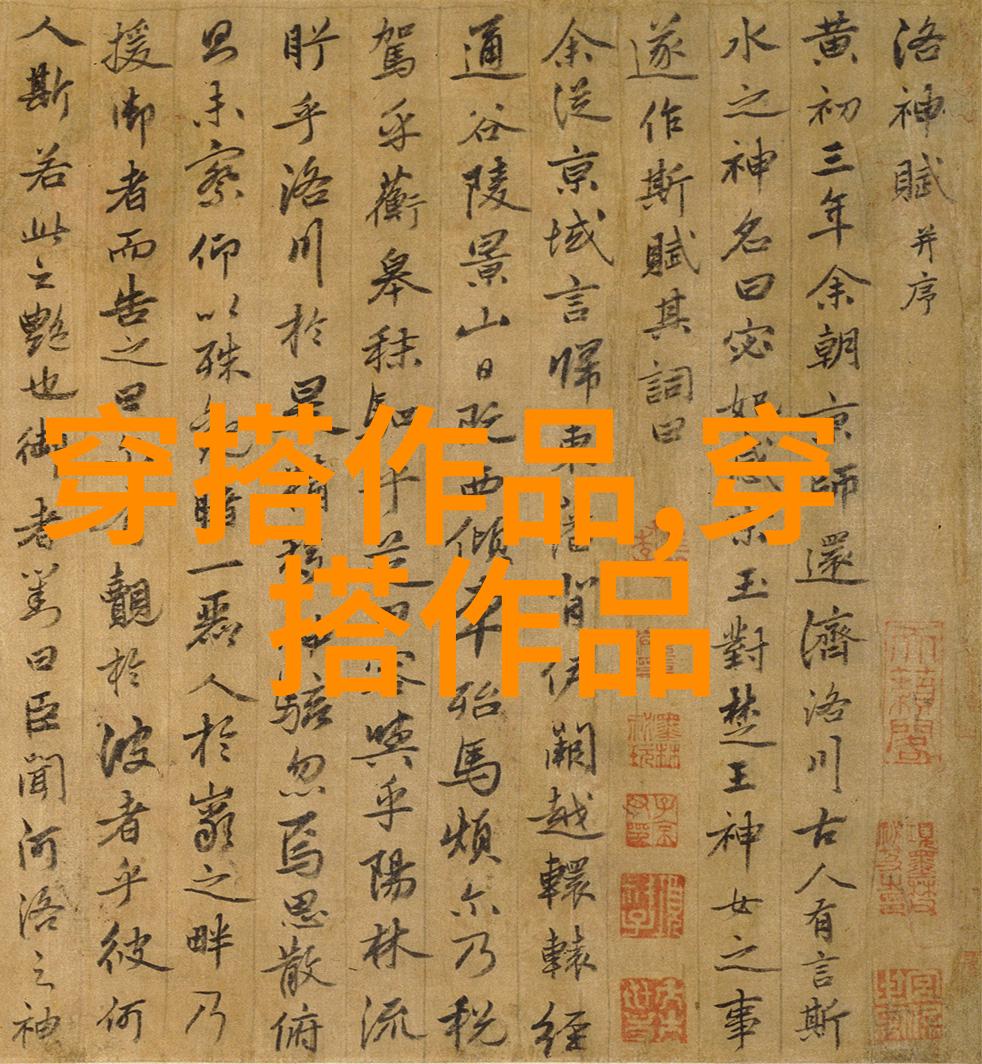 洛神賦并序
黄初三年余朝京師還濟洛川古人有言斯
水之神名曰宓妃感宋玉對楚王神女之事
遂作斯賦其詞曰
余從京域言歸東藩背伊闕越轘轅經
通谷陵景山日既西傾車殆馬煩尒乃税
駕乎蘅皋秣駟乎芝田容與乎陽林流
眄乎洛川於是精移神駭忽焉思散俯
則未察仰以殊觀睹一麗人於巖之畔乃
援御者而告之曰尒有覿於彼者乎彼何
人斯若此之艷也御者對曰臣聞河洛之神
穿搭作品,穿
搭作品